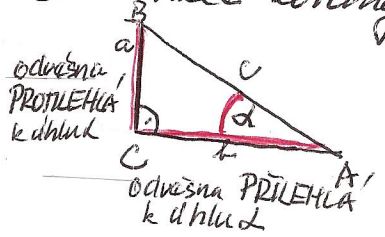 B
a
odvěsna
PROTILEHLÁ
k úhlu α
c
α
C
b
A
odvěsna PŘILEHLÁ
k úhlu α